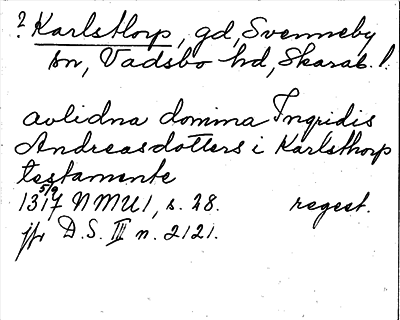 ? Karlsthorp, gd, Svenneby
sn, Vadsbo hd, Skarab. l.
avlidna domina Ingridis
Andreasdotters i Karlsthorp
testamente
5/9
1317 NMU 1, s. 28. regest.
jfr D.S. III n. 2121.